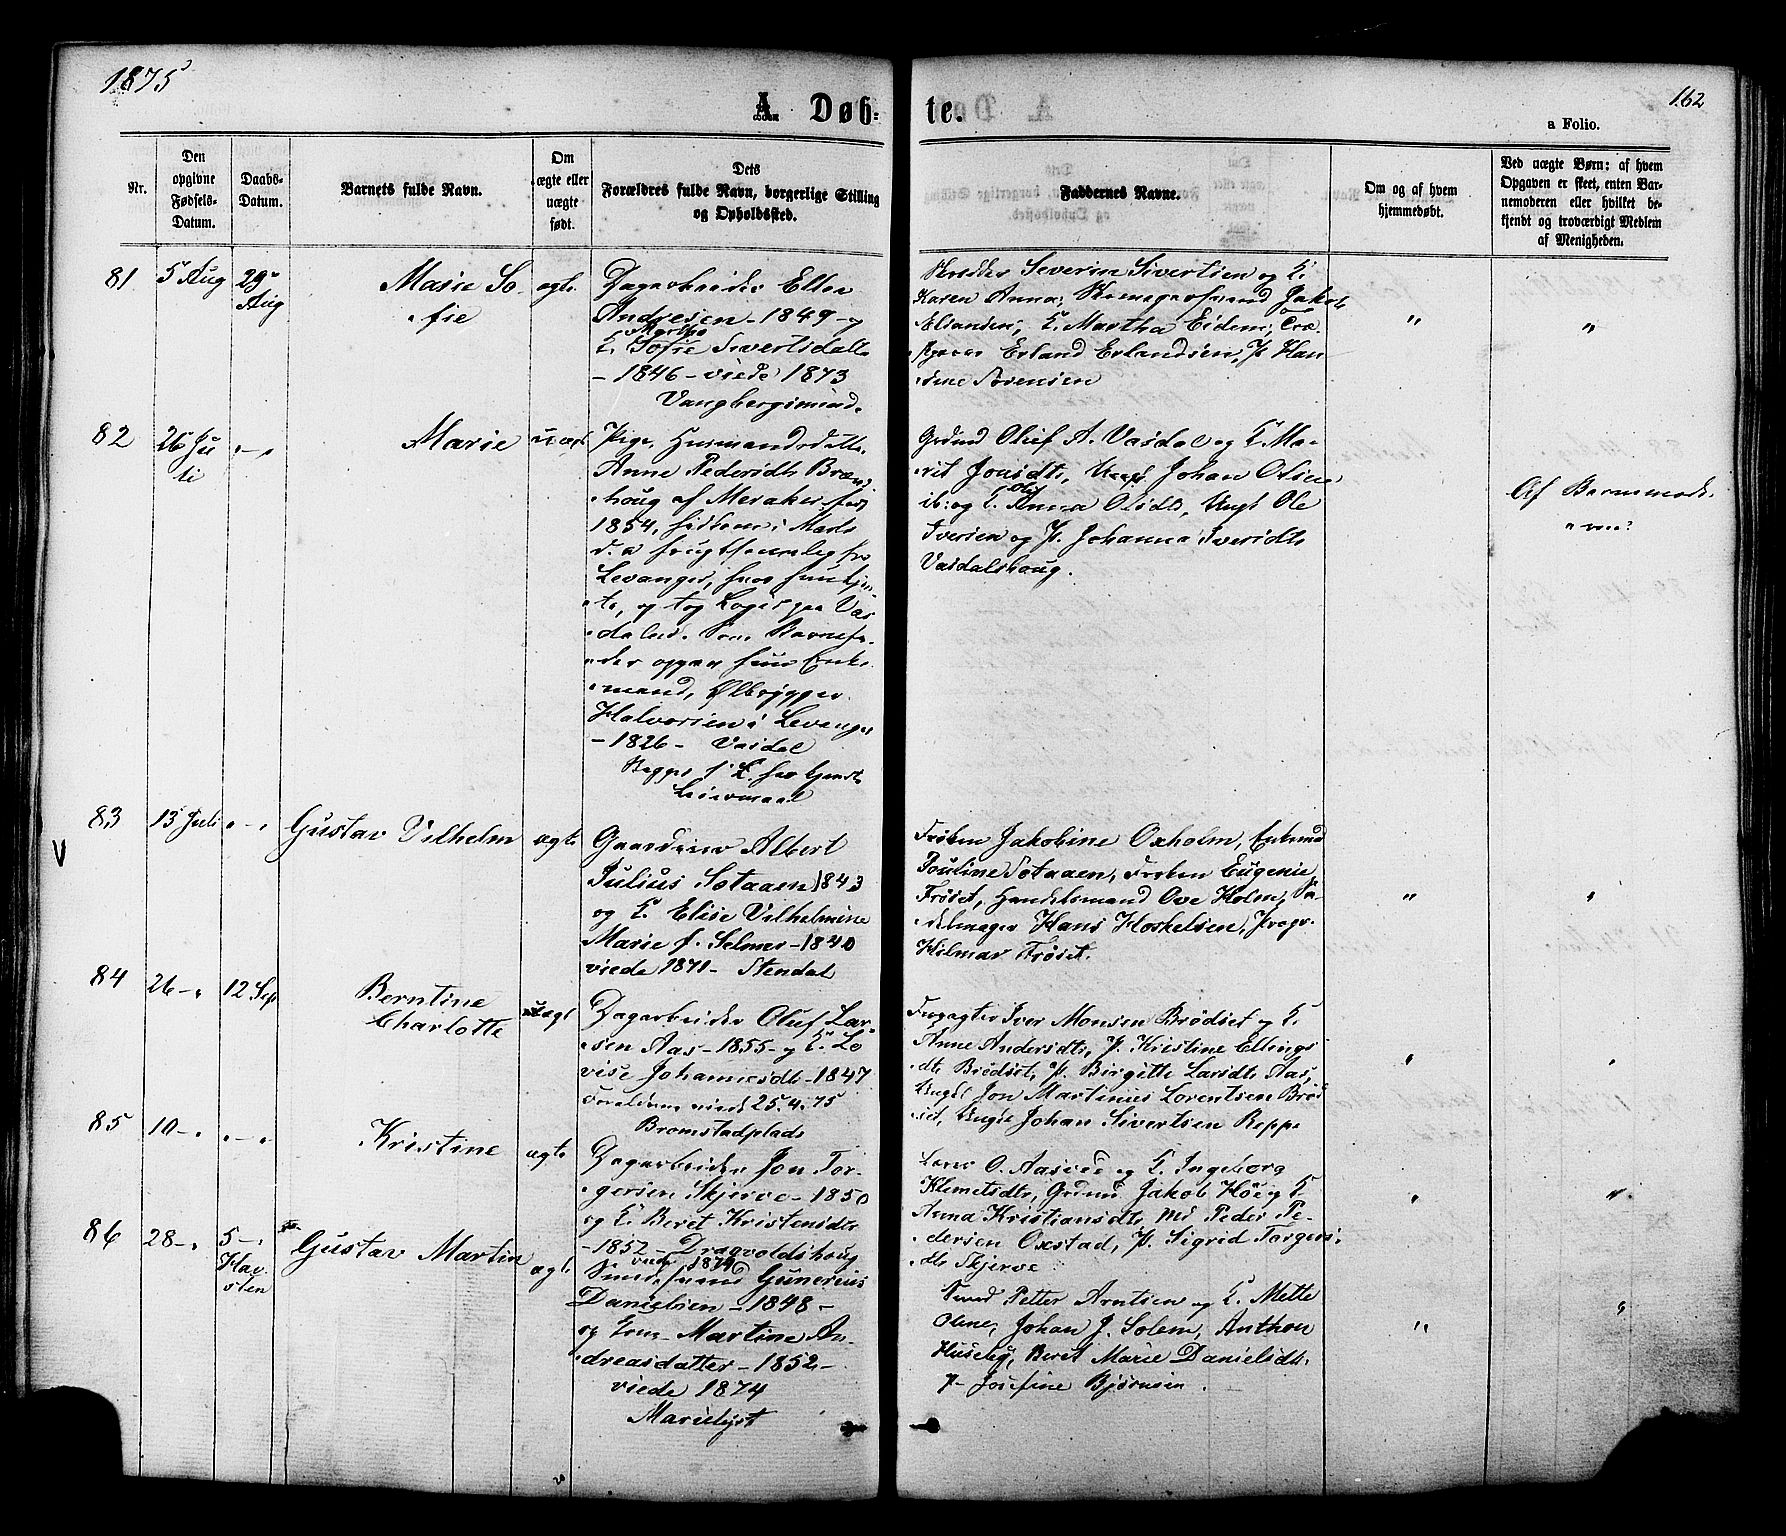 1875
162
A Døb-
te.
a Folio.
Nr.
Den opgivne Fødsels-Datum.
Daabs-Datum.
Barnets fulde Navn.
Om ægte eller uægte født.
Dets Forældres fulde Navn, borgerlige Stilling og Opholdssted.
Faddernes Navne.
Om og af hvem hjemmedøbt.
Ved uægte Børn: af hvem Opgaven er skeet, enten Barnemoderen eller hvilket bekjendt og troværdigt Medlem af Menigheden.
81
5 Aug
29 Aug
Marie So-
fie
ægte
Dagarbeider Ellen
Andresen - 1849 - og
Marthe
E. Sofie Sivertsdatter
- 1846 - viede 1873
Severin Sivertsen og E.
Karen Anna, Jakob
E. Martha Eidem,
Erland Erlandsen, P. Han-
sine Sørensen
"
"
82
26 Ju-
li
" - "
Marie
uægt
Pige, Husmandsdatter
Anne Pedersdt
houg af Meraker, født
1854, i Marts
d. a. frugtsommelig fra
Levanger, hvor hun tjen-
te, og tog Logis paa Vas-
dalen. Som Barnefa-
der opgav hun Enke-
mand, Ølbrygger
Halvorsen i Levanger
- 1826 - Vasdal
Begges 1ste L.
Leiermaal
Grdmd Oluf A. Vasdal og E. Ma-
rit Jonsdt, Ungk Johan Olsen
ib. og E. Anna Olsdt, Ungk Ole
Iversen og P. Johanna Iversdt
Vasdalshoug.
Af Barnemode-
ren
83
13 Juli
" - "
Gustav Vilhelm
ægte
Gaardeier Albert
Julius Sotaaen 1843
og E. Elise Vilhelmine
Marie f. Selmer - 1840
viede 1871 - Stendal
Frøken Jakobine Oxholm, Enkemd
Pouline Sotaaen, Frøken Eugenie
Frøset, Handelsmand Ove Holm, Sa-
delmager Hans Hoskelsen,
Hilmar Frøset.
"
"
84
26 - "
12 Sep
Berntine
Charlotte
ægt
Dagarbeider Oluf Lar-
sen Aas - 1855 - og E. Lo-
vise Johannesdt - 1847
Forældrene viede 25.4.75
Bromstadplads
Forpagter Iver Monsen Brødset og E.
Anne Andersdt, P. Kristine Ellings-
dt Brødset, P. Birgitte Larsdt Aas,
Ungk Jon Martinus Lorentsen Brød-
set, Ungk Johan Sivertsen Reppe
"
"
85
10 - "
" - "
Kristine
ægte
Dagarbeider Jon Tor-
gersen Skjerve - 1850
og E. Beret Kristensdt
- 1852 - Dragvoldshoug
viede 1874
O. Aasvee og E. Ingeborg
Klemetsdt, Grdmd Jakob Høe og E.
Anna Kristiansdt, Md Peder Pe-
dersen Oxstad, P. Sigrid Torgers-
dt Skjerve
"
"
86
28 - "
5 - "
Hav-
sten
Gustav Martin
ægte
Gunerius
Danielsen - 1848 -
og Kone Martine An-
dreasdatter - 1852 -
viede 1874
Marielyst
Petter Arntsen og E. Mette
Oline, Johan J. Solem, Anthon
Huseby, Beret Marie Danielsdt.
P. Josefine Bjørnsen.
"
"
V